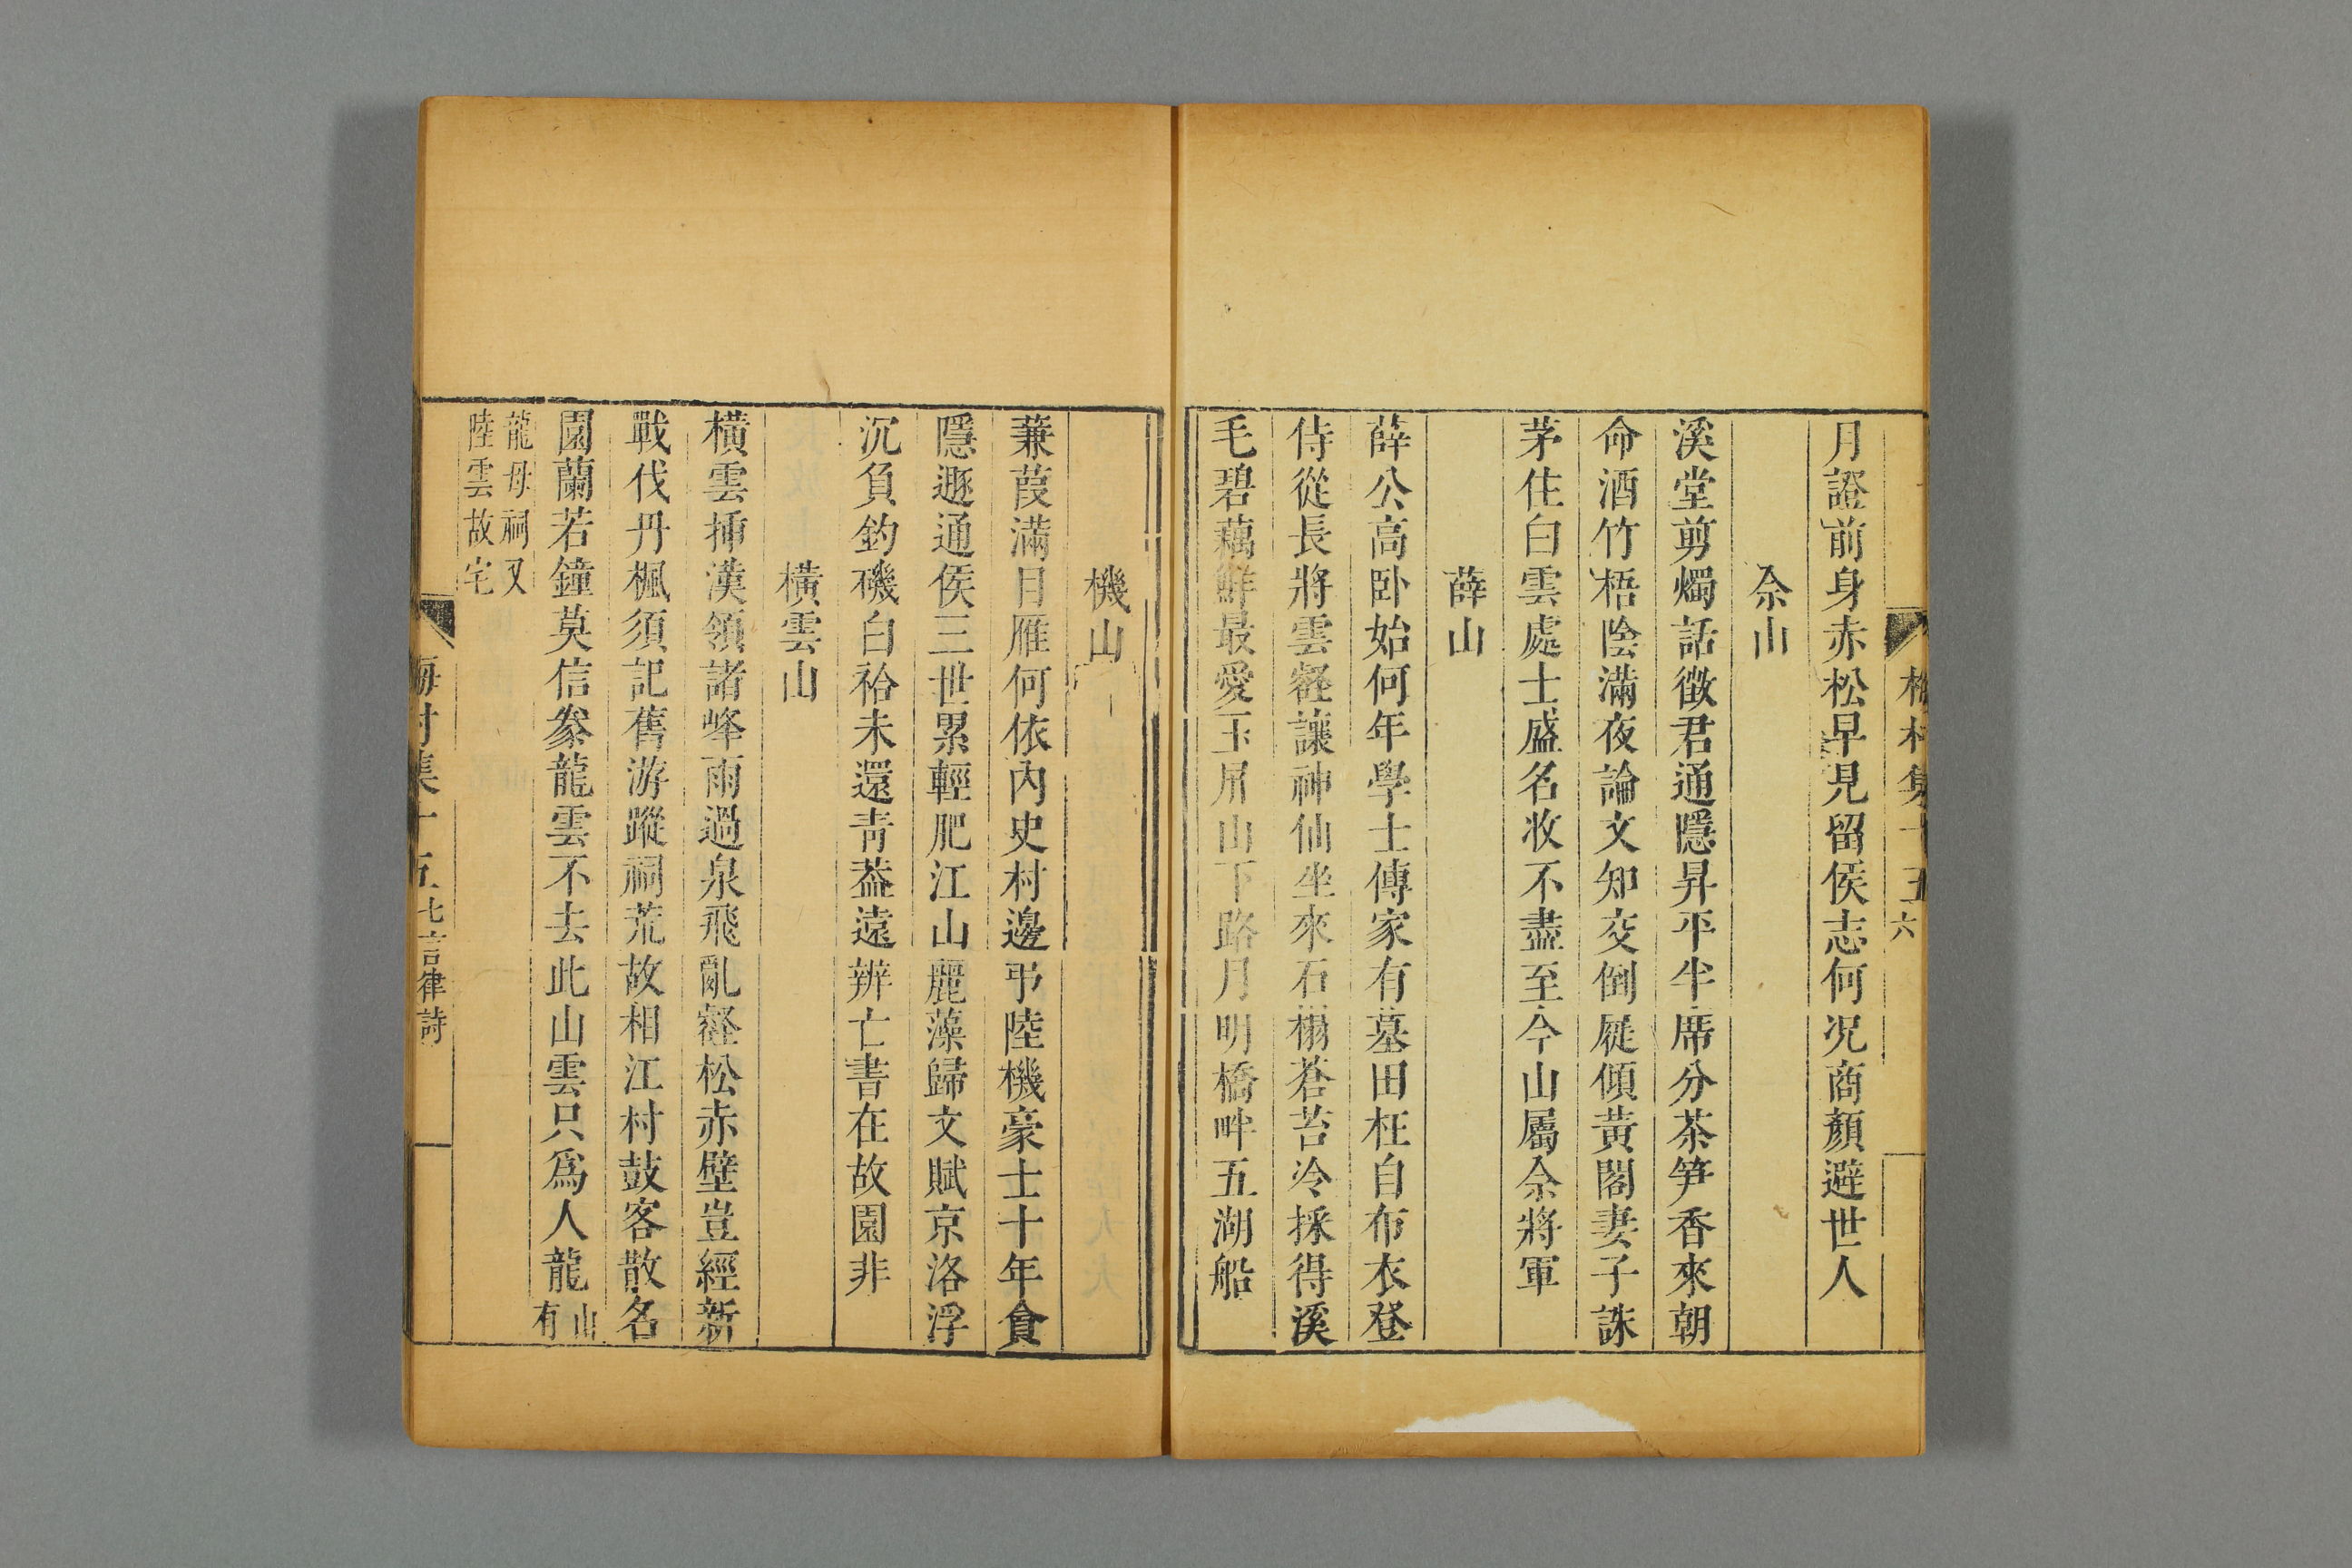 梅村集十五 六
月證前身赤松早見留侯志何况商顏避世人
佘山
溪堂剪燭話徵君通隱昇平半席分茶笋香來朝
命酒竹梧陰滿夜論文知交倒屣傾黃閣妻子誅
茅住白雲處士盛名收不盡至今山屬佘將軍
薛山
薛公高卧始何年學士傳家有墓田枉自布衣登
侍從長將雲壑讓神仙坐來石榻蒼苔冷採得溪
毛碧藕鮮最愛玉屏山下路月明橋畔五湖船
機山
蒹葭滿目雁何依內史村邊弔陸機豪士十年貪
隱遯通侯三世累輕肥江山麗藻歸文賦京洛浮
沉負釣磯白袷未還青葢遠辨亡書在故園非
橫雲山
橫雲揷漢領諸峰雨過泉飛亂壑松赤壁豈經新
戰伐丹楓須記舊游蹤祠荒故相江村鼓客散名
園蘭若鐘莫信豢龍雲不去此山雲只爲人龍 山有
龍母祠又
陸雲故宅
梅村集十五 七言律詩